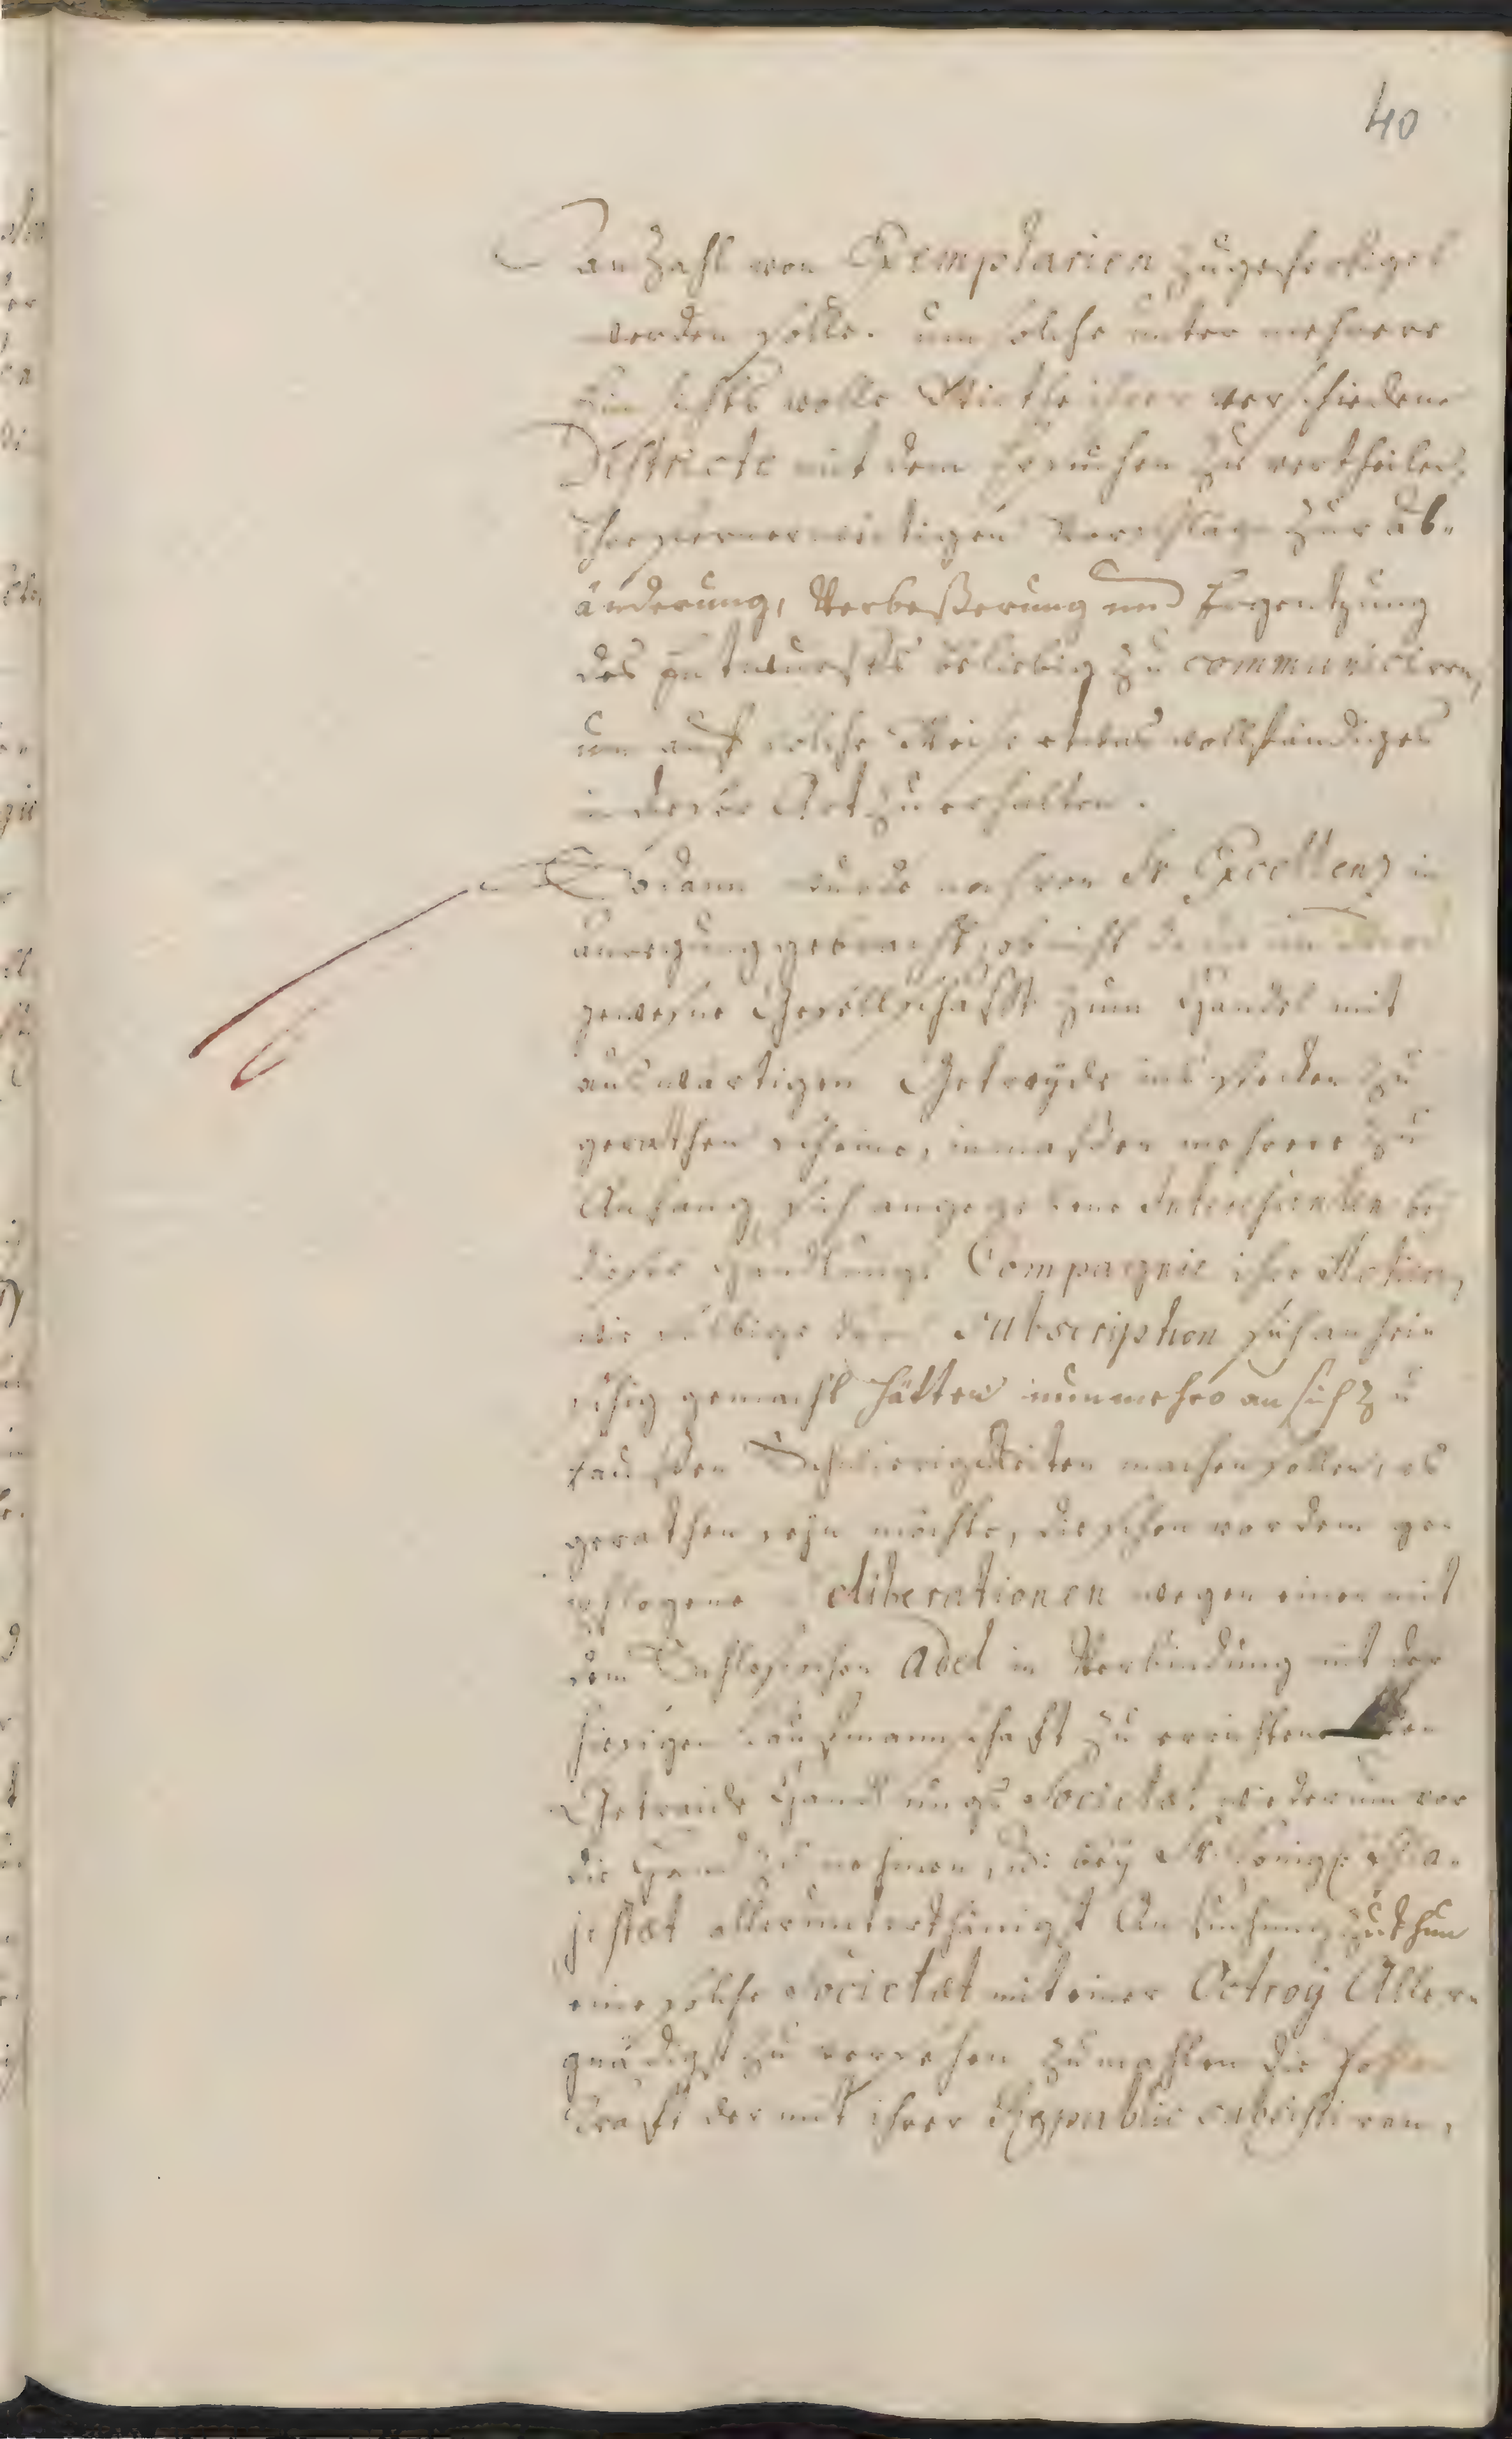 40
anzahl von Exemplarien zugefertiget
werden solle. um solche unter mehrere
Einsichts volle Wirthe ihrer verschiedene
Districte mit dem Ersuchen zu vertheilen,
ihre ferner weitigen Vorschläge zur ab-
änderung, Verbeßerung und Ergentzung
des Entwurffs beliebig zu communiciren,
um auf solche Weise etwas vollständiges
in dieser Art zu erhalten.
Sodann wurde noch von Sr Excellenz in
anregung gebracht, ob nicht da die im
gewesene Gesellschafft zum Handel mit
auswärtigen Getreyde ins stecken zu
gerathen scheine, inmaßen mehrere zu
Anfang sich angegebene Interessenten bey
dieser Handlungs Compagnie ihre Actien,
wie selbige durch Subscription sich anhei-
schig gemacht hätten nunmehro an sich zu
kauffen Schwierigkeiten machen sollen, es
gerathen seyn möchte, die schon vordem ge-
pflogene deliberationen wegen einer mit
dem Schlesischen Adel in Verbindung mit der
hiesigen Kaufmannschaft zu errichtenden
Getraide Handlungs Societæt wiederum vor
die Hand zu nehmen, u: bey Sr Königl: Ma-
jestæt allerunterthänigst Ansuchung zu thun
eine solche Societæt mit einer Octroy Aller-
gnädigst zu versehen zumahlen die
krafft der mit ihrer Republic subsistiren,